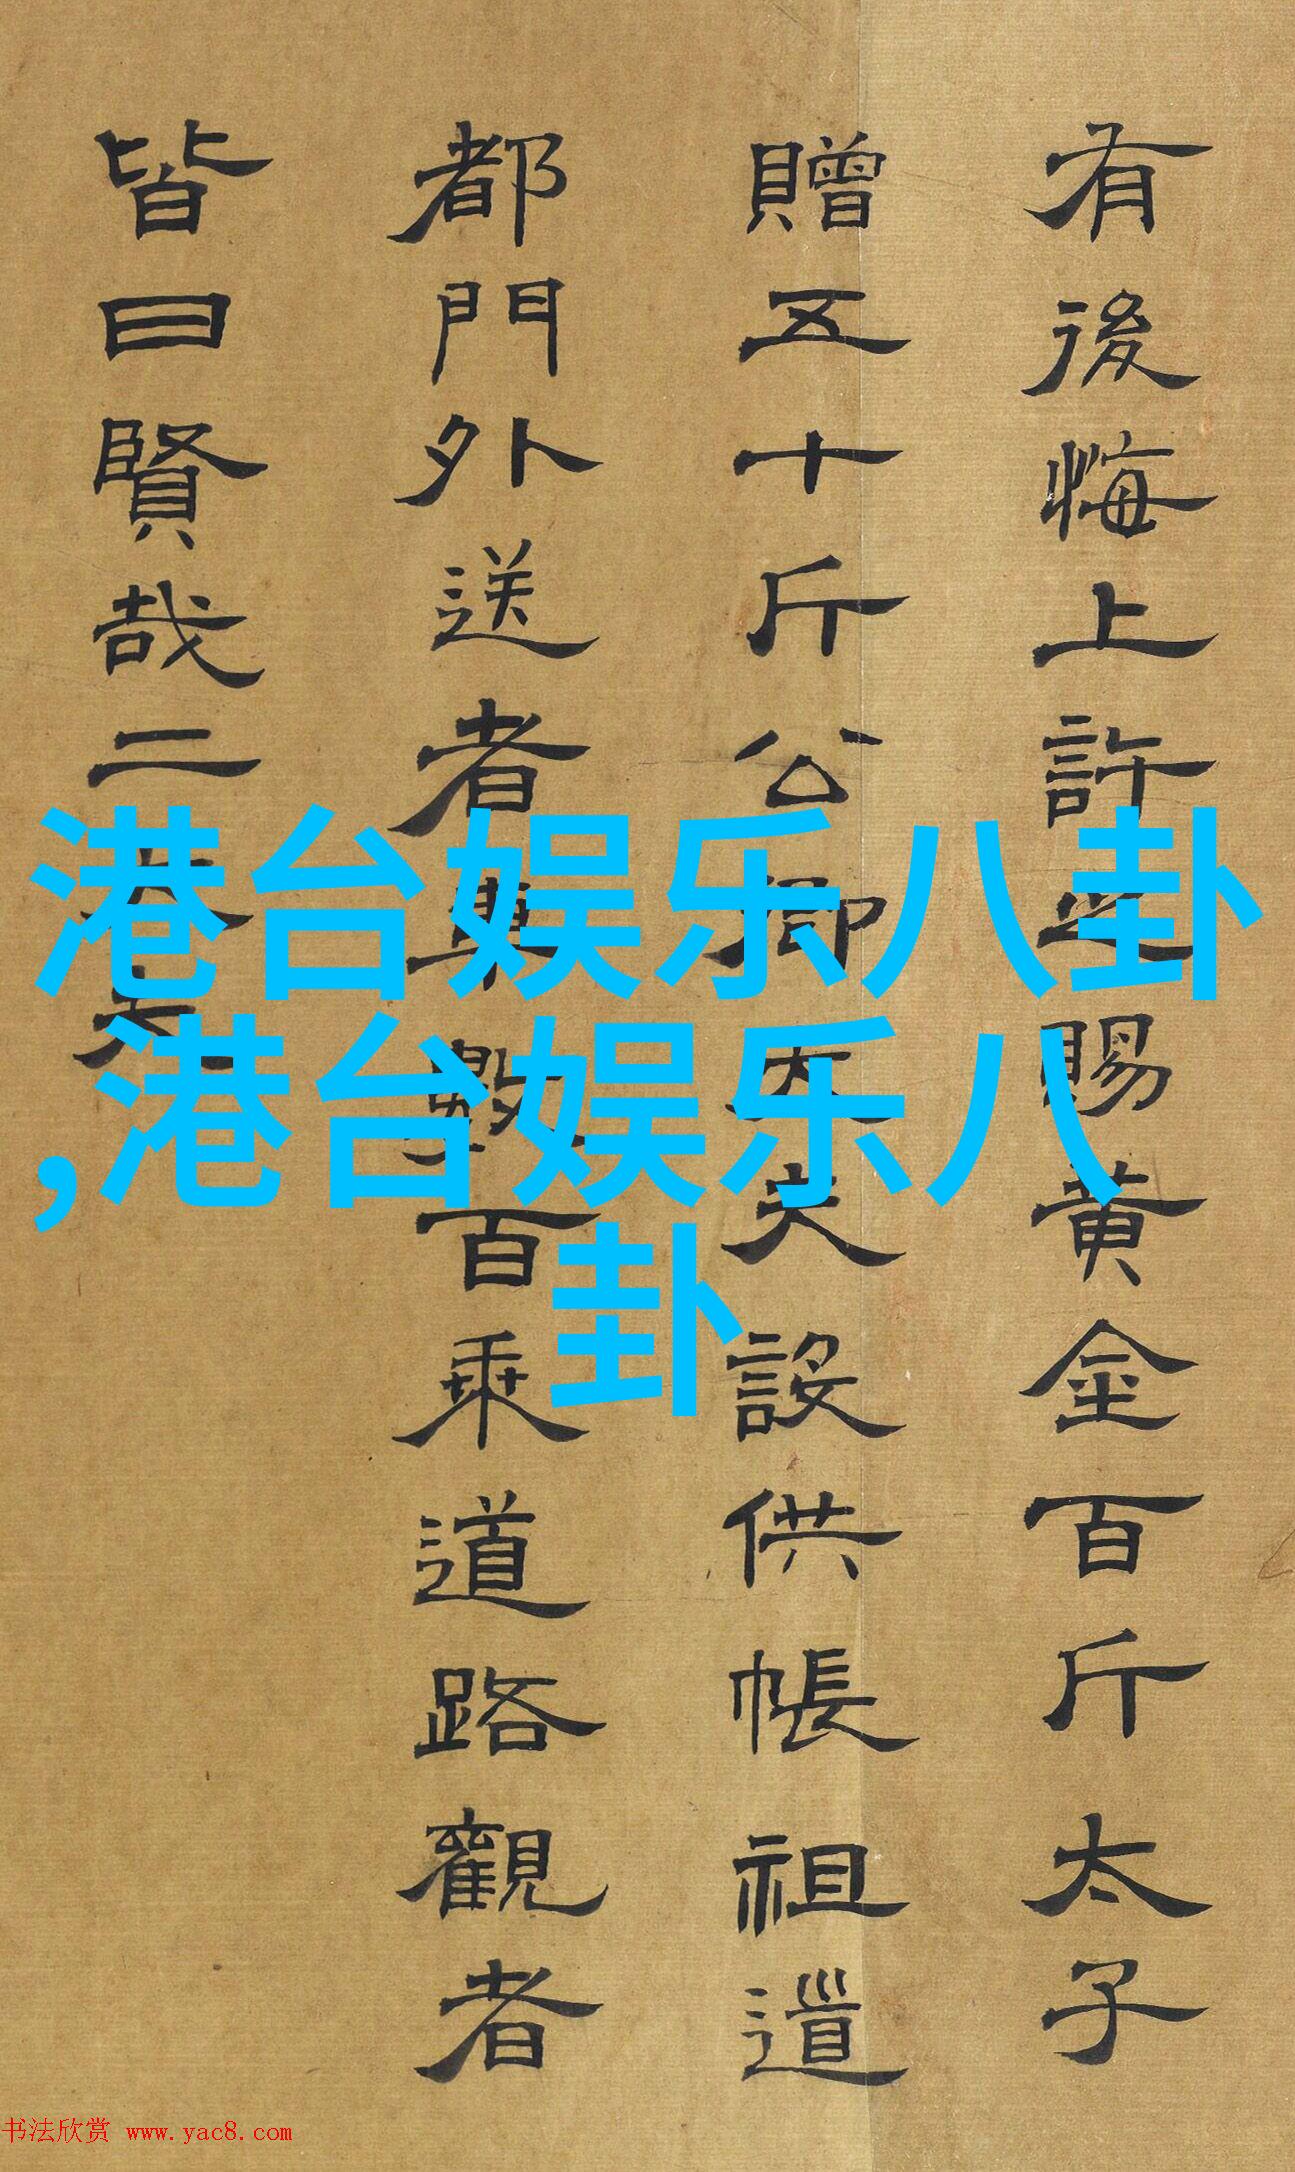 有後悔上許之賜黃金百斤太子
贈五十斤公卿大夫設供帳祖道
都門外送者車數百乘道路觀者
皆曰賢哉二大夫
港台娱乐八卦
,港台娱乐八
卦
书法欣赏 www.yac8.com